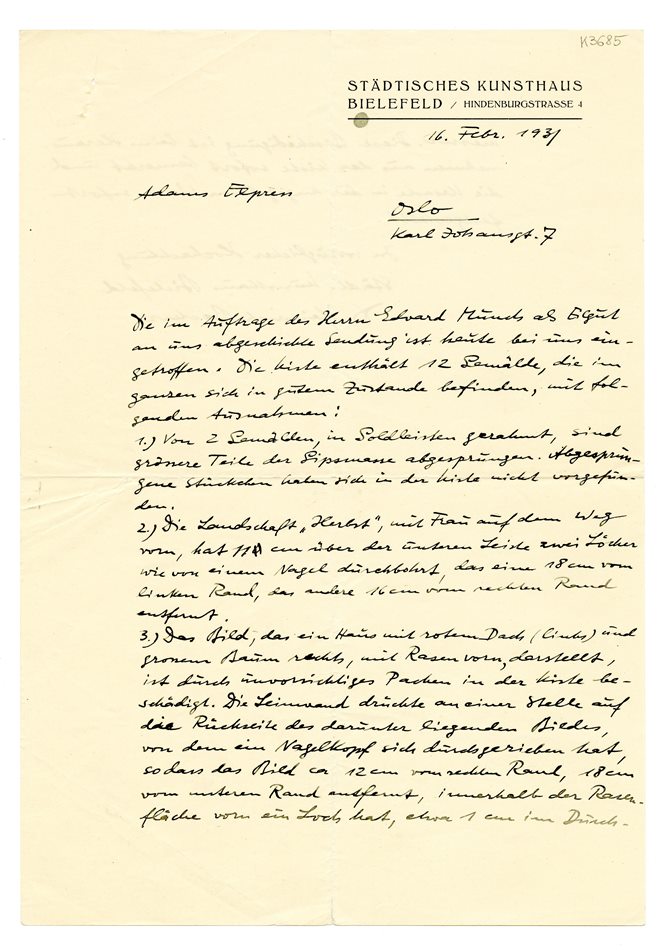 K3685
STÄDTISCHES KUNSTHAUS
BIELEFELD / HINDENBURGSTRASSE 4
16. Febr. 1931
Adams Express
Oslo
Karl Johansgt. 7
Die im Auftrage des Herrn Edvard Munch als Eilgut
an uns abgeschickte Sendung ist heute bei uns ein-
getroffen. Die Kiste enthält 12 Gemälde, die im
ganzen sich in gutem Zustande befinden, mit fol-
genden Ausnahmen:
1.) Von 2 Gemälden, in Goldleisten gerahmt, sind
grössere Teile der Gipsmasse abgesprungen. Abgesprun-
gene Stückchen haben sich in der Kiste nicht vorgefun-
den.
2.) Die Landschaft „Herbst“, mit Frau auf dem Weg
vorn, hat 11 cm über der unteren Leiste zwei Löcher
wie von einem Nagel durchbohrt, das eine 18 cm vom
linken Rand, das andere 16 cm vom rechten Rand
entfernt.
3.) Das Bild, das ein Haus mit rotem Dach (links) und
grossem Baum rechts, mit Rasen vorn, darstellt,
ist durch unvorsichtiges Packen in der Kiste be-
schädigt. Die Leinwand drückte an einer Stelle auf
die Rückseite des darunter liegenden Bildes,
von dem ein Nagelkopf sich durchgerieben hat,
sodass das Bild ca 12 cm vom rechten Rand, 18 cm
vom unteren Rand entfernt, innerhalb der Rasen-
fläche vorn ein Loch hat, etwa 1 cm im Durch-